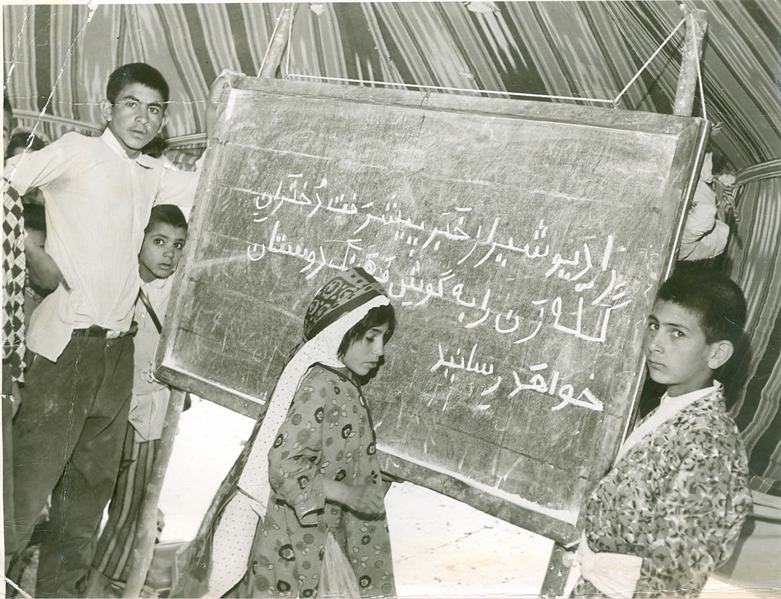 رادیو شیراز خَبَر پیشرَفت دُختَرانِ
گلّه زَن را به گوشِ فَرهَنگ دوستان
خواهَد رسانید